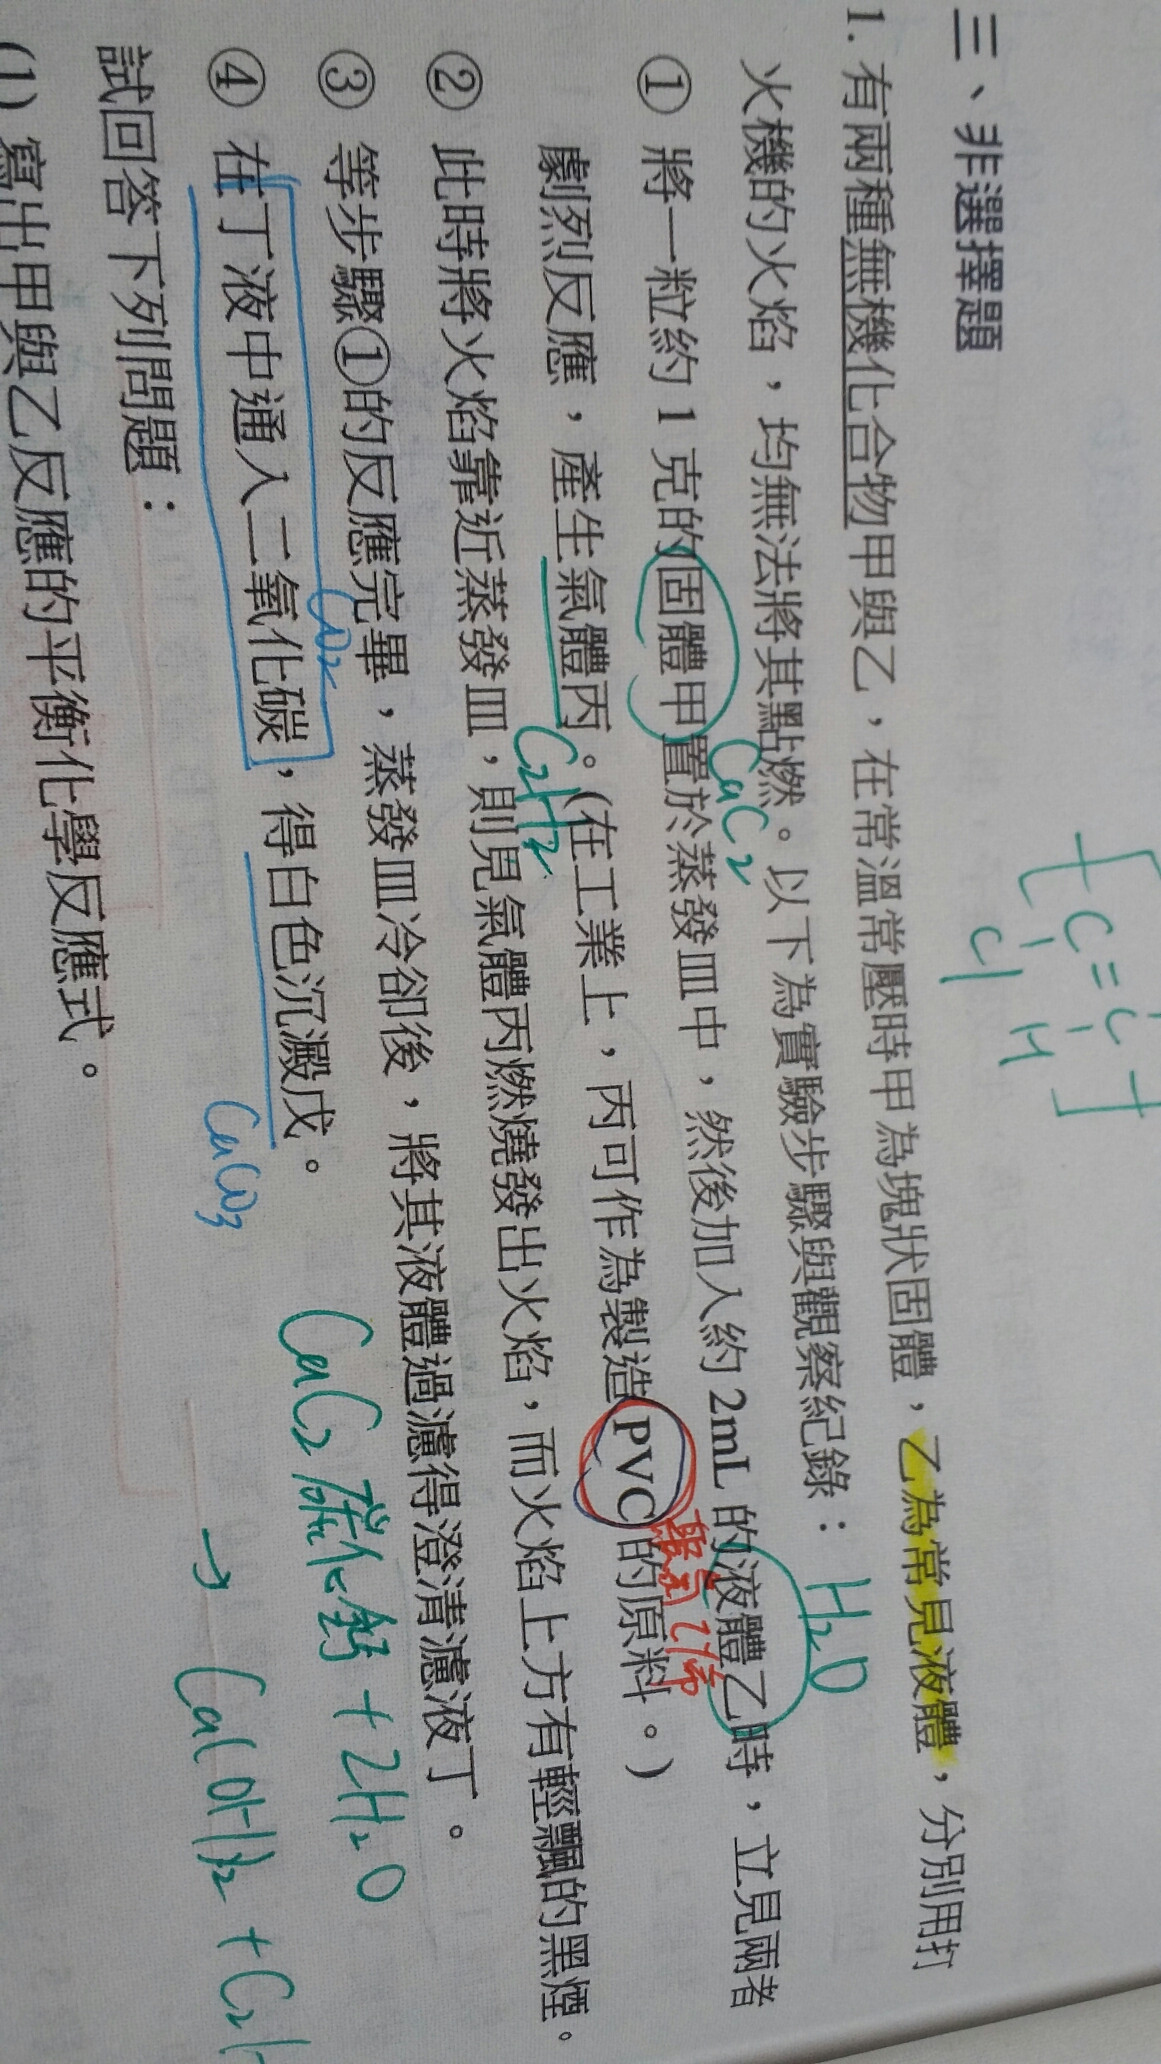 [C=C]
Cl H
三、非選擇題
1. 有兩種無機化合物甲與乙，在常溫常壓時甲為塊狀固體，乙為常見液體，分別用打
火機的火焰，均無法將其點燃。以下為實驗步驟與觀察紀錄：
H₂O
CaC₂
① 將一粒約 1 克的固體甲置於蒸發皿中，然後加入約 2mL 的液體乙時，立見兩者
聚氯乙烯
劇烈反應，產生氣體丙。(在工業上，丙可作為製造 PVC 的原料。)
C₂H₂
② 此時將火焰靠近蒸發皿，則見氣體丙燃燒發出火焰，而火焰上方有輕飄的黑煙。
③ 等步驟①的反應完畢，蒸發皿冷卻後，將其液體過濾得澄清濾液丁。
CO₂
④ 在丁液中通入二氧化碳，得白色沉澱戊。
CaCO₃
CaC₂ 碳化鈣 + 2H₂O
→ Ca(OH)₂ + C₂H
試回答下列問題：
(1) 寫出甲與乙反應的平衡化學反應式。